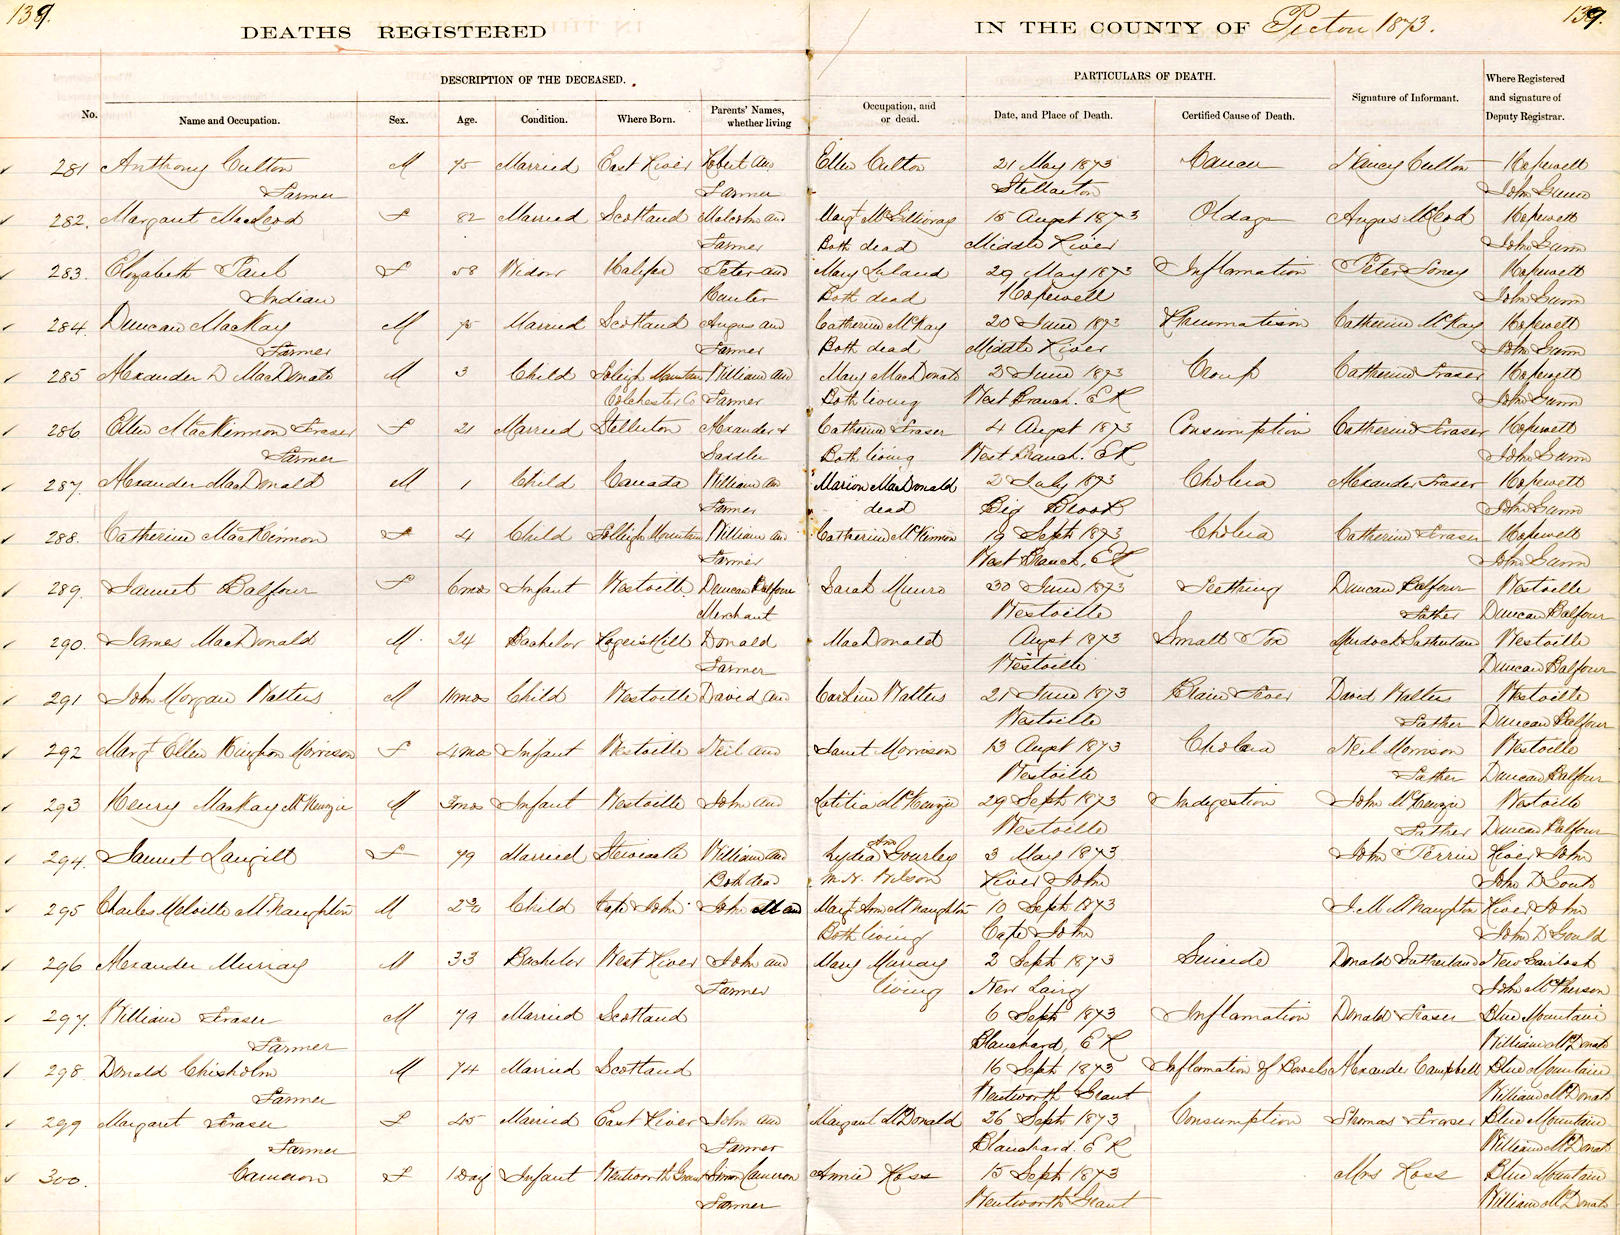 139.
DEATHS REGISTERED
IN THE COUNTY OF Pictou 1873.
139.
DESCRIPTION OF THE DECEASED.
PARTICULARS OF DEATH.
No.
Name and Occupation.
Sex.
Age.
Condition.
Where Born.
Parents' Names, whether living
Occupation, and or dead.
Date, and Place of Death.
Certified Cause of Death.
Signature of Informant.
Where Registered and signature of Deputy Registrar.
281 Anthony Culton M 75 Married East River Robert and Ellen Culton 21 May 1873 Cancer Nancy Culton Hopewell
Farmer Farmer Stellarton John Gunn
282. Margaret MacLeod F 82 Married Scotland Malcolm and Margt McGillivray 15 Augst 1873 Oldage Angus McLeod Hopewell
Farmer Both dead Middle River John Gunn
283. Elizabeth Paul F 58 Widow Halifax Peter and Mary 29 May 1873 Inflamation Peter Hopewell
Indian Hunter Both dead Hopewell John Gunn
284. Duncan MacKay M 75 Married Scotland Angus and Catherine McKay 20 June 1873 Rheumatism Catherine McKay Hopewell
Farmer Farmer Both dead Middle River John Gunn
285 Alexander D MacDonald M 3 Child Mountain William and Mary MacDonald 2 June 1873 Croup Catherine Fraser Hopewell
Colchester Co Farmer Both living West Branch. E R John Gunn
286 Ellen MacKinnon Fraser F 21 Married Alexander & Catherine Fraser 4 Augst 1873 Consumption Catherine Fraser Hopewell
Farmer Saddler Both living West Branch. E R John Gunn
287. Alexander MacDonald M 1 Child Canada William and Marion MacDonald 2 July 1873 Cholera Alexander Fraser Hopewell
Farmer dead Big Brook John Gunn
288. Catherine MacKinnon F 4 Child Mountain William and Catherine McKinnon 19 Sept 1873 Cholera Catherine Fraser Hopewell
Farmer West Branch, E R John Gunn
289. Jannet Balfour F 6mos Infant Westville Duncan Balfour Sarah Munro 30 June 1873 Teething Duncan Balfour Westville
Merchant Westville Father Duncan Balfour
290. James MacDonald M. 24 Bachelor Rogers Hill Donald MacDonald Augst 1873 Small Pox Murdoch Sutherland Westville
Farmer Westville Duncan Balfour
291 John Morgan Walters M 11mos Child Westville David and Caroline Walters 21 June 1873 Brain Fever David Walters Westville
Westville Father Duncan Balfour
292 Margt Ellen Morrison F 4mo Infant Westville Neil and Janet Morrison 13 Augst 1873 Cholera Neil Morrison Westville
Westville Father Duncan Balfour
293 Henry MacKay McKenzie M 3mos Infant Westville John and Letitia McKenzie 29 Sept 1873 Indigestion John McKenzie Westville
Westville Father Duncan Balfour
294. Jannet Langill F 79 Married William and Lydia Ann Gourley 3 May 1873 John Perrin River John
Both dead Wilson River John John D Gould
295 Charles Melville McNaughton M Child Cape John John M and Margt Ann McNaughton 10 Sept 1873 J. M McNaughton River John
Both living Cape John John D Gould
296 Alexander Murray M 33 Bachelor West River John and Mary Murray 2 Sept 1873 Suicide Donald Sutherland New Gairloch
Farmer living New Lairg John McPherson
297. William Fraser M 79 Married Scotland 6 Sept 1873 Inflamation Donald Fraser Blue Mountain
Farmer Blanchard, E R William McDonald
298. Donald Chisholm M 74 Married Scotland 16 Sept 1873 Inflamation of Bowels Alexander Campbell Blue Mountain
Farmer Wentworth Grant William McDonald
299 Margaret Fraser F 45 Married East River John and Margaret McDonald 26 Sept 1873 Consumption Thomas Fraser Blue Mountain
Farmer Farmer Blanchard. E R William McDonald
300. Cameron F 1 Day Infant Wentworth Grant Simon Cameron Annie Ross 15 Sept 1873 Mrs Ross Blue Mountain
Farmer Wentworth Grant William McDonald